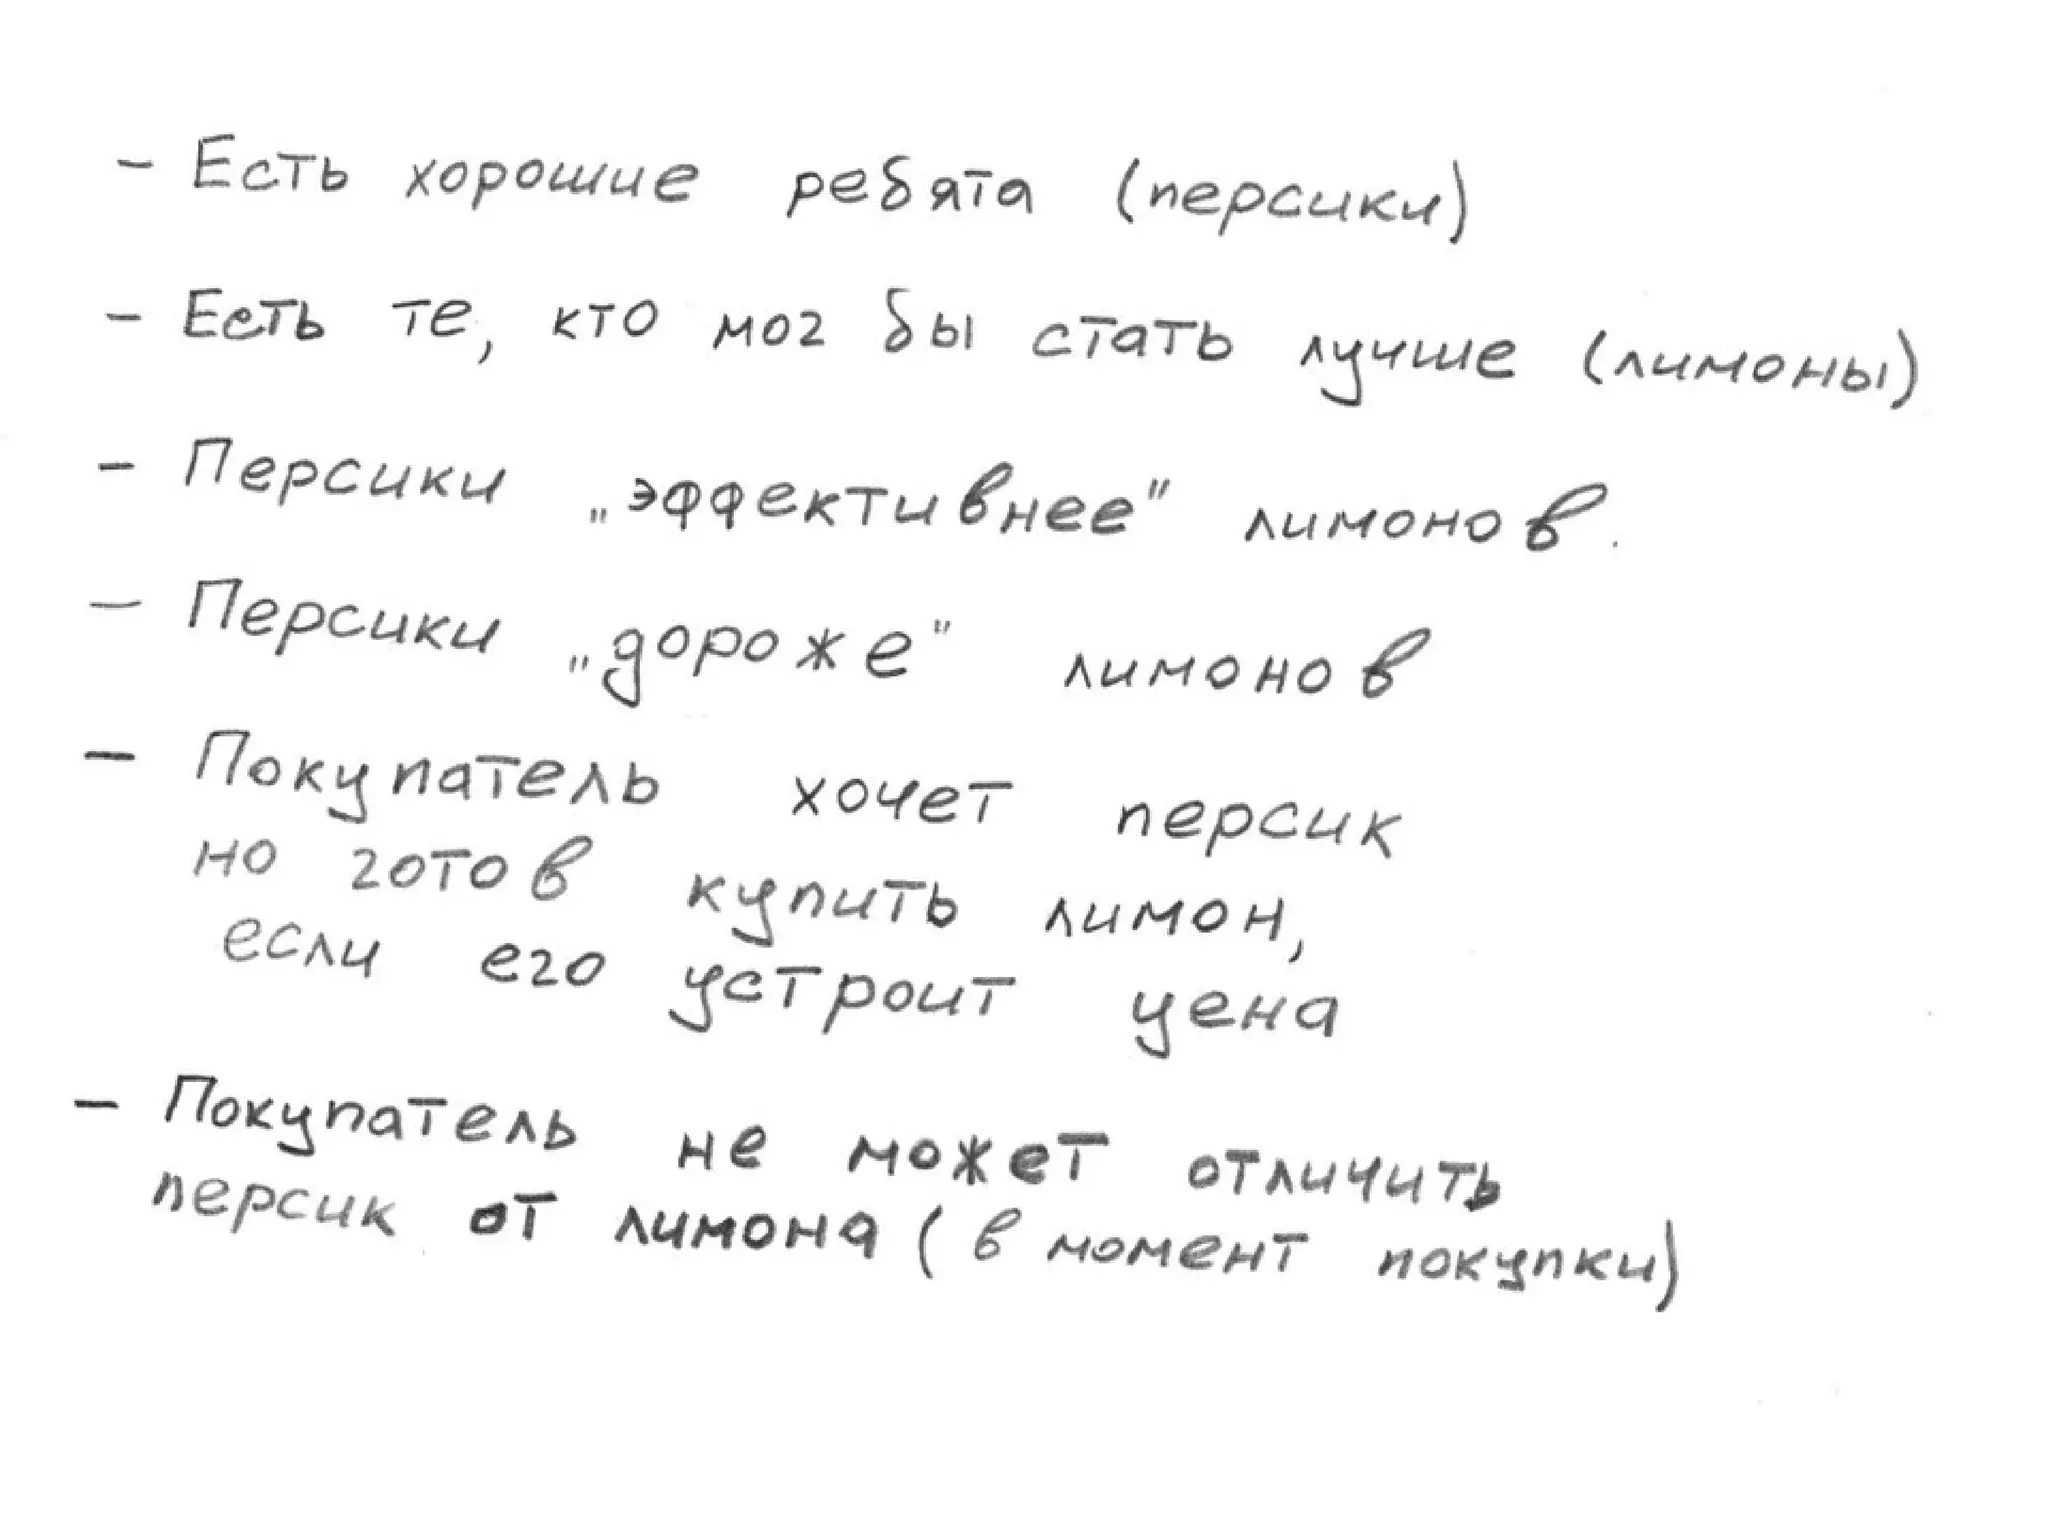 - Есть хорошие ребята (персики)
- Есть те, кто мог бы стать лучше (лимоны)
- Персики „эффективнее" лимонов.
- Персики „дороже" лимонов
- Покупатель хочет персик
но готов купить лимон,
если его устроит цена
- Покупатель не может отличить
персик от лимона (в момент покупки)